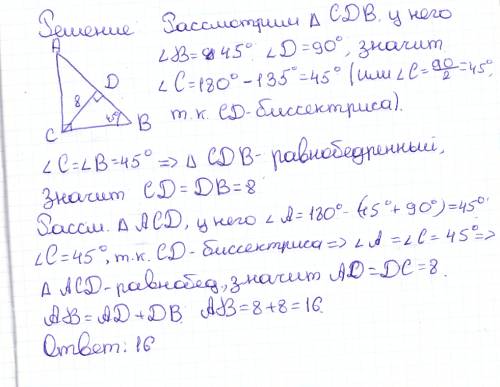 Решение Рассмотрим △ CDB, у него
∠B = 45° ∠D = 90°, значит
∠C = 180° - 135° = 45° (или ∠C = 90/2 = 45°,
т.к. CD - биссектриса).
A
D
8
45°
C
B
∠C = ∠B = 45° => △ CDB - равнобедренный,
значит CD = DB = 8
Рассм. △ ACD, у него ∠A = 180° - (45° + 90°) = 45°
∠C = 45°, т.к. CD - биссектриса => ∠A = ∠C = 45° =>
△ ACD - равнобед., значит AD = DC = 8.
AB = AD + DB. AB = 8 + 8 = 16.
Ответ: 16